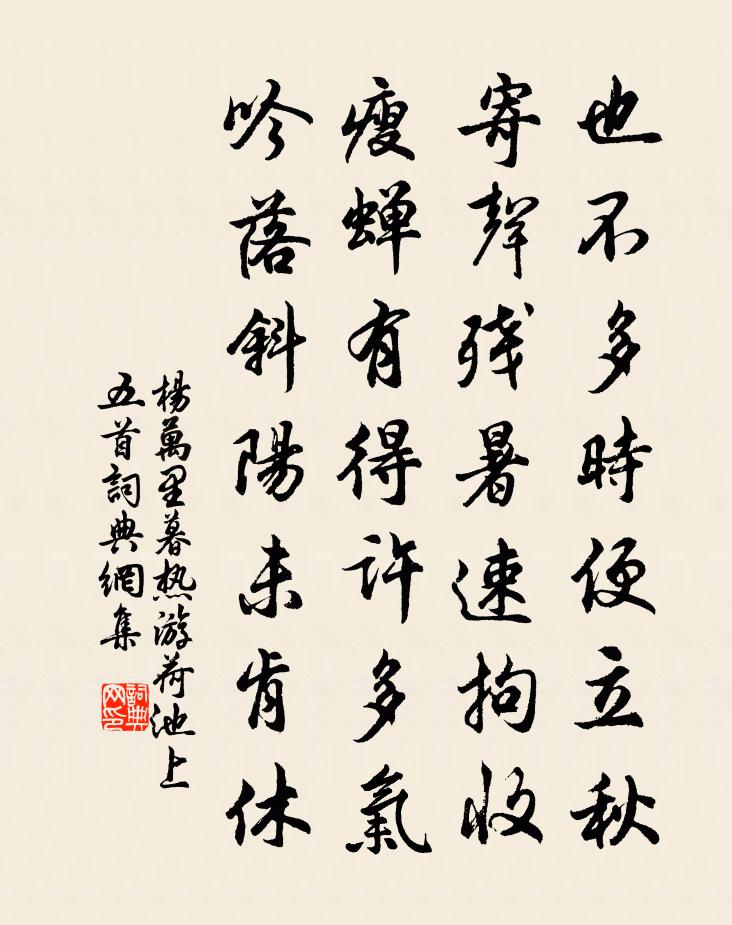 也不多時便立秋
寄聲残暑速拘收
瘦蝉有得許多氣
吟落斜陽未肯休
楊萬里暮热游荷池上
五首詞典網集
詞典
网印